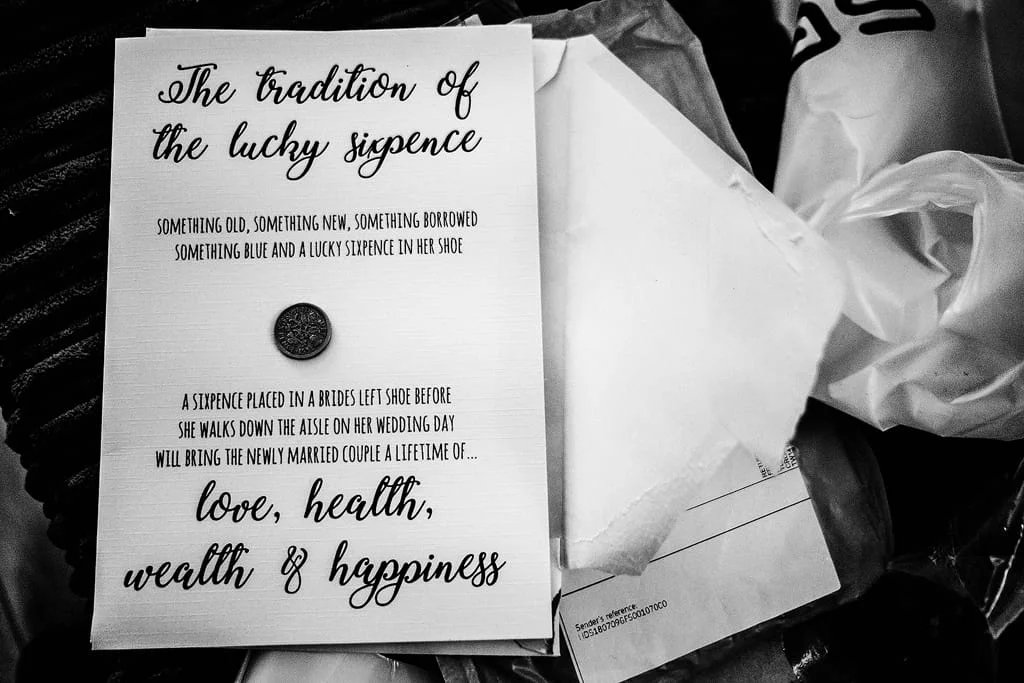 The tradition of
the lucky sixpence
SOMETHING OLD, SOMETHING NEW, SOMETHING BORROWED
SOMETHING BLUE AND A LUCKY SIXPENCE IN HER SHOE
A SIXPENCE PLACED IN A BRIDES LEFT SHOE BEFORE
SHE WALKS DOWN THE AISLE ON HER WEDDING DAY
WILL BRING THE NEWLY MARRIED COUPLE A LIFETIME OF...
love, health,
wealth & happiness
Sender's reference:
HDS180709GFS001070C0